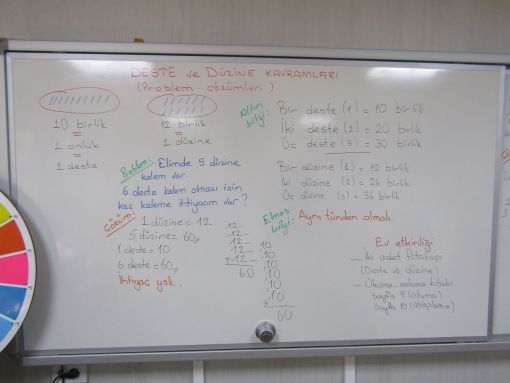 DESTE ve DÜZİNE KAVRAMLARI
(Problem çözümleri)
10 birlik
1 onluk
1 deste
12 birlik
1 düzine
Altın bilgi:
Bir deste (1) = 10 birlik
İki deste (2) = 20 birlik
Üç deste (3) = 30 birlik
Bir düzine (1) = 12 birlik
İki düzine (2) = 24 birlik
Üç düzine (3) = 36 birlik
Problem: Elimde 5 düzine
kalem var.
6 deste kalem olması için
kaç kaleme ihtiyacım var?
Çözüm: 1 düzine = 12
5 düzine = 60
1 deste = 10
6 deste = 60
İhtiyaç yok.
12
12
12
12
+ 12
60
10
10
10
10
10
+ 10
60
Elmas bilgi: Aynı türden olmalı.
Ev etkinliği
— İki adet fotokopi
(Deste ve düzine)
— Okuma-anlama kitabı
sayfa 9 (Okuma)
sayfa 10 (cevaplama)